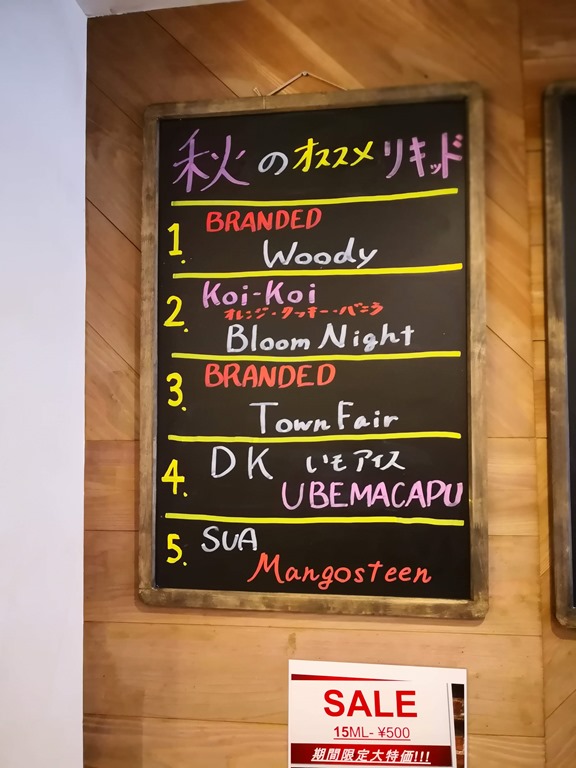 秋のオススメリキッド
1. BRANDED
Woody
2. Koi-Koi
オレンジ・クッキー・バニラ
Bloom Night
3. BRANDED
Town Fair
4. DK いもアイス
UBEMACAPU
5. SUA
Mangosteen
SALE
15ML- ¥500
期間限定大特価!!!